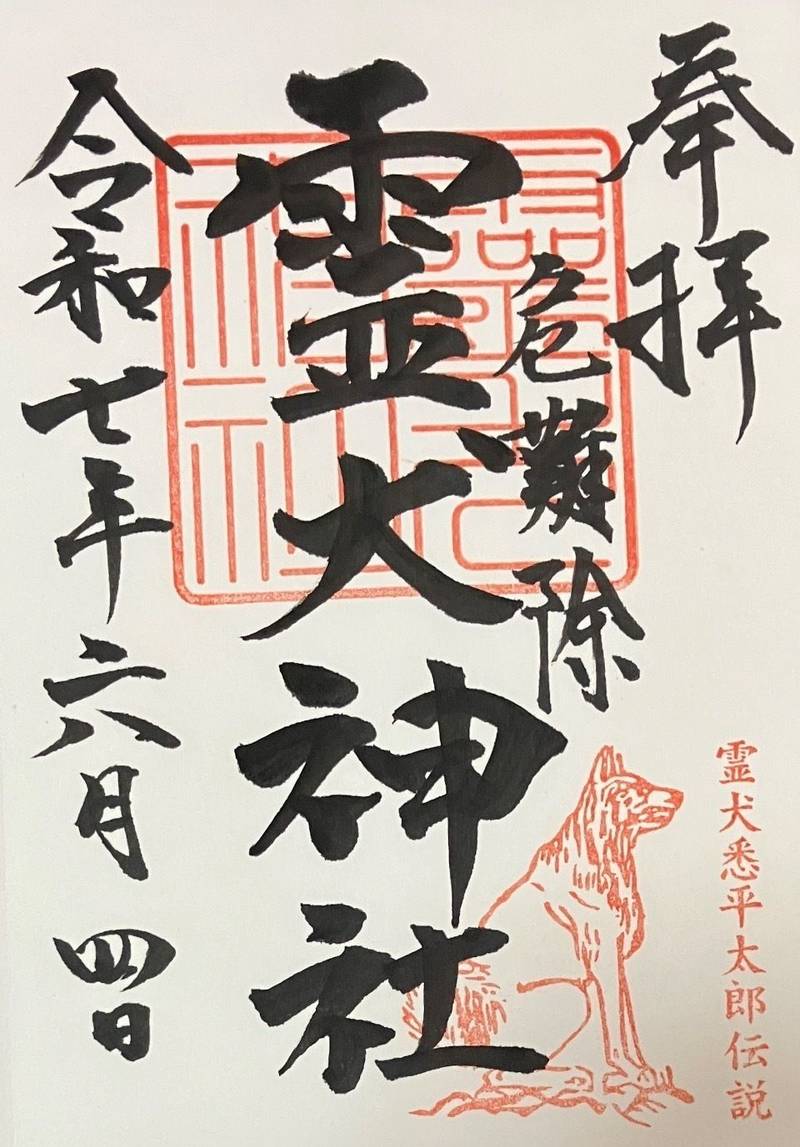 奉拝
危難除
霊犬神社
令和七年六月四日
霊犬悉平太郎伝説